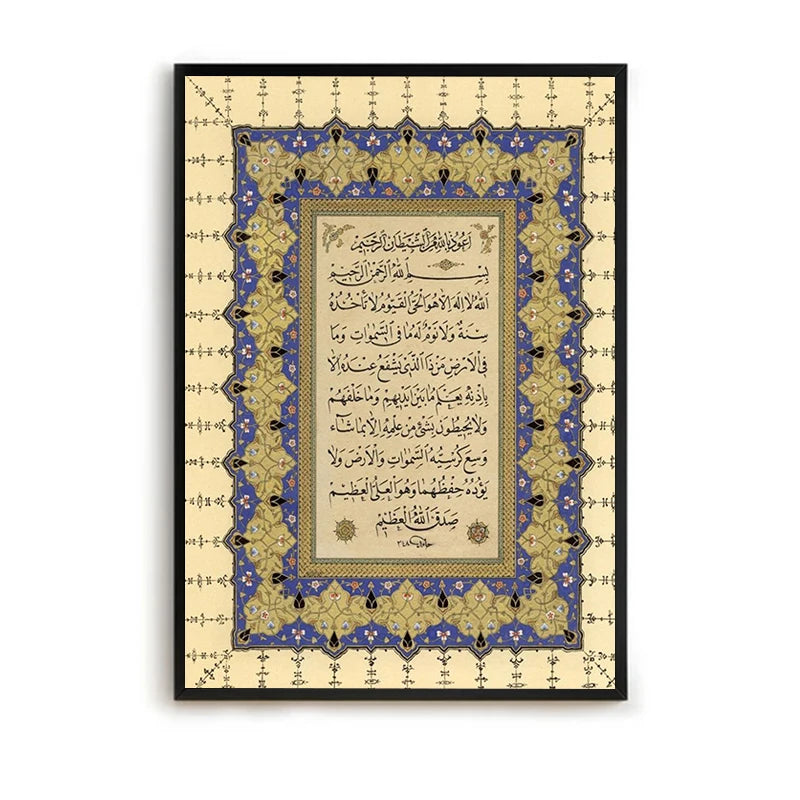 اَعُوذُ بِاللهِ مِنَ الشَّيْطَانِ الرَّجِيمِ
بِسْمِ اللهِ الرَّحْمٰنِ الرَّحِيمِ
اَللهُ لَا اِلٰهَ اِلَّا هُوَ الْحَيُّ الْقَيُّومُ لَا تَأْخُذُهُ
سِنَةٌ وَلَا نَوْمٌ لَهُ مَا فِي السَّمٰوَاتِ وَمَا
فِي الْاَرْضِ مَنْ ذَا الَّذِي يَشْفَعُ عِنْدَهُ اِلَّا
بِاِذْنِهِ يَعْلَمُ مَا بَيْنَ اَيْدِيهِمْ وَمَا خَلْفَهُمْ
وَلَا يُحِيطُونَ بِشَيْءٍ مِنْ عِلْمِهِ اِلَّا بِمَا شَاءَ
وَسِعَ كُرْسِيُّهُ السَّمٰوَاتِ وَالْاَرْضَ وَلَا
يَؤُدُهُ حِفْظُهُمَا وَهُوَ الْعَلِيُّ الْعَظِيمُ
صَدَقَ اللهُ الْعَظِيمُ